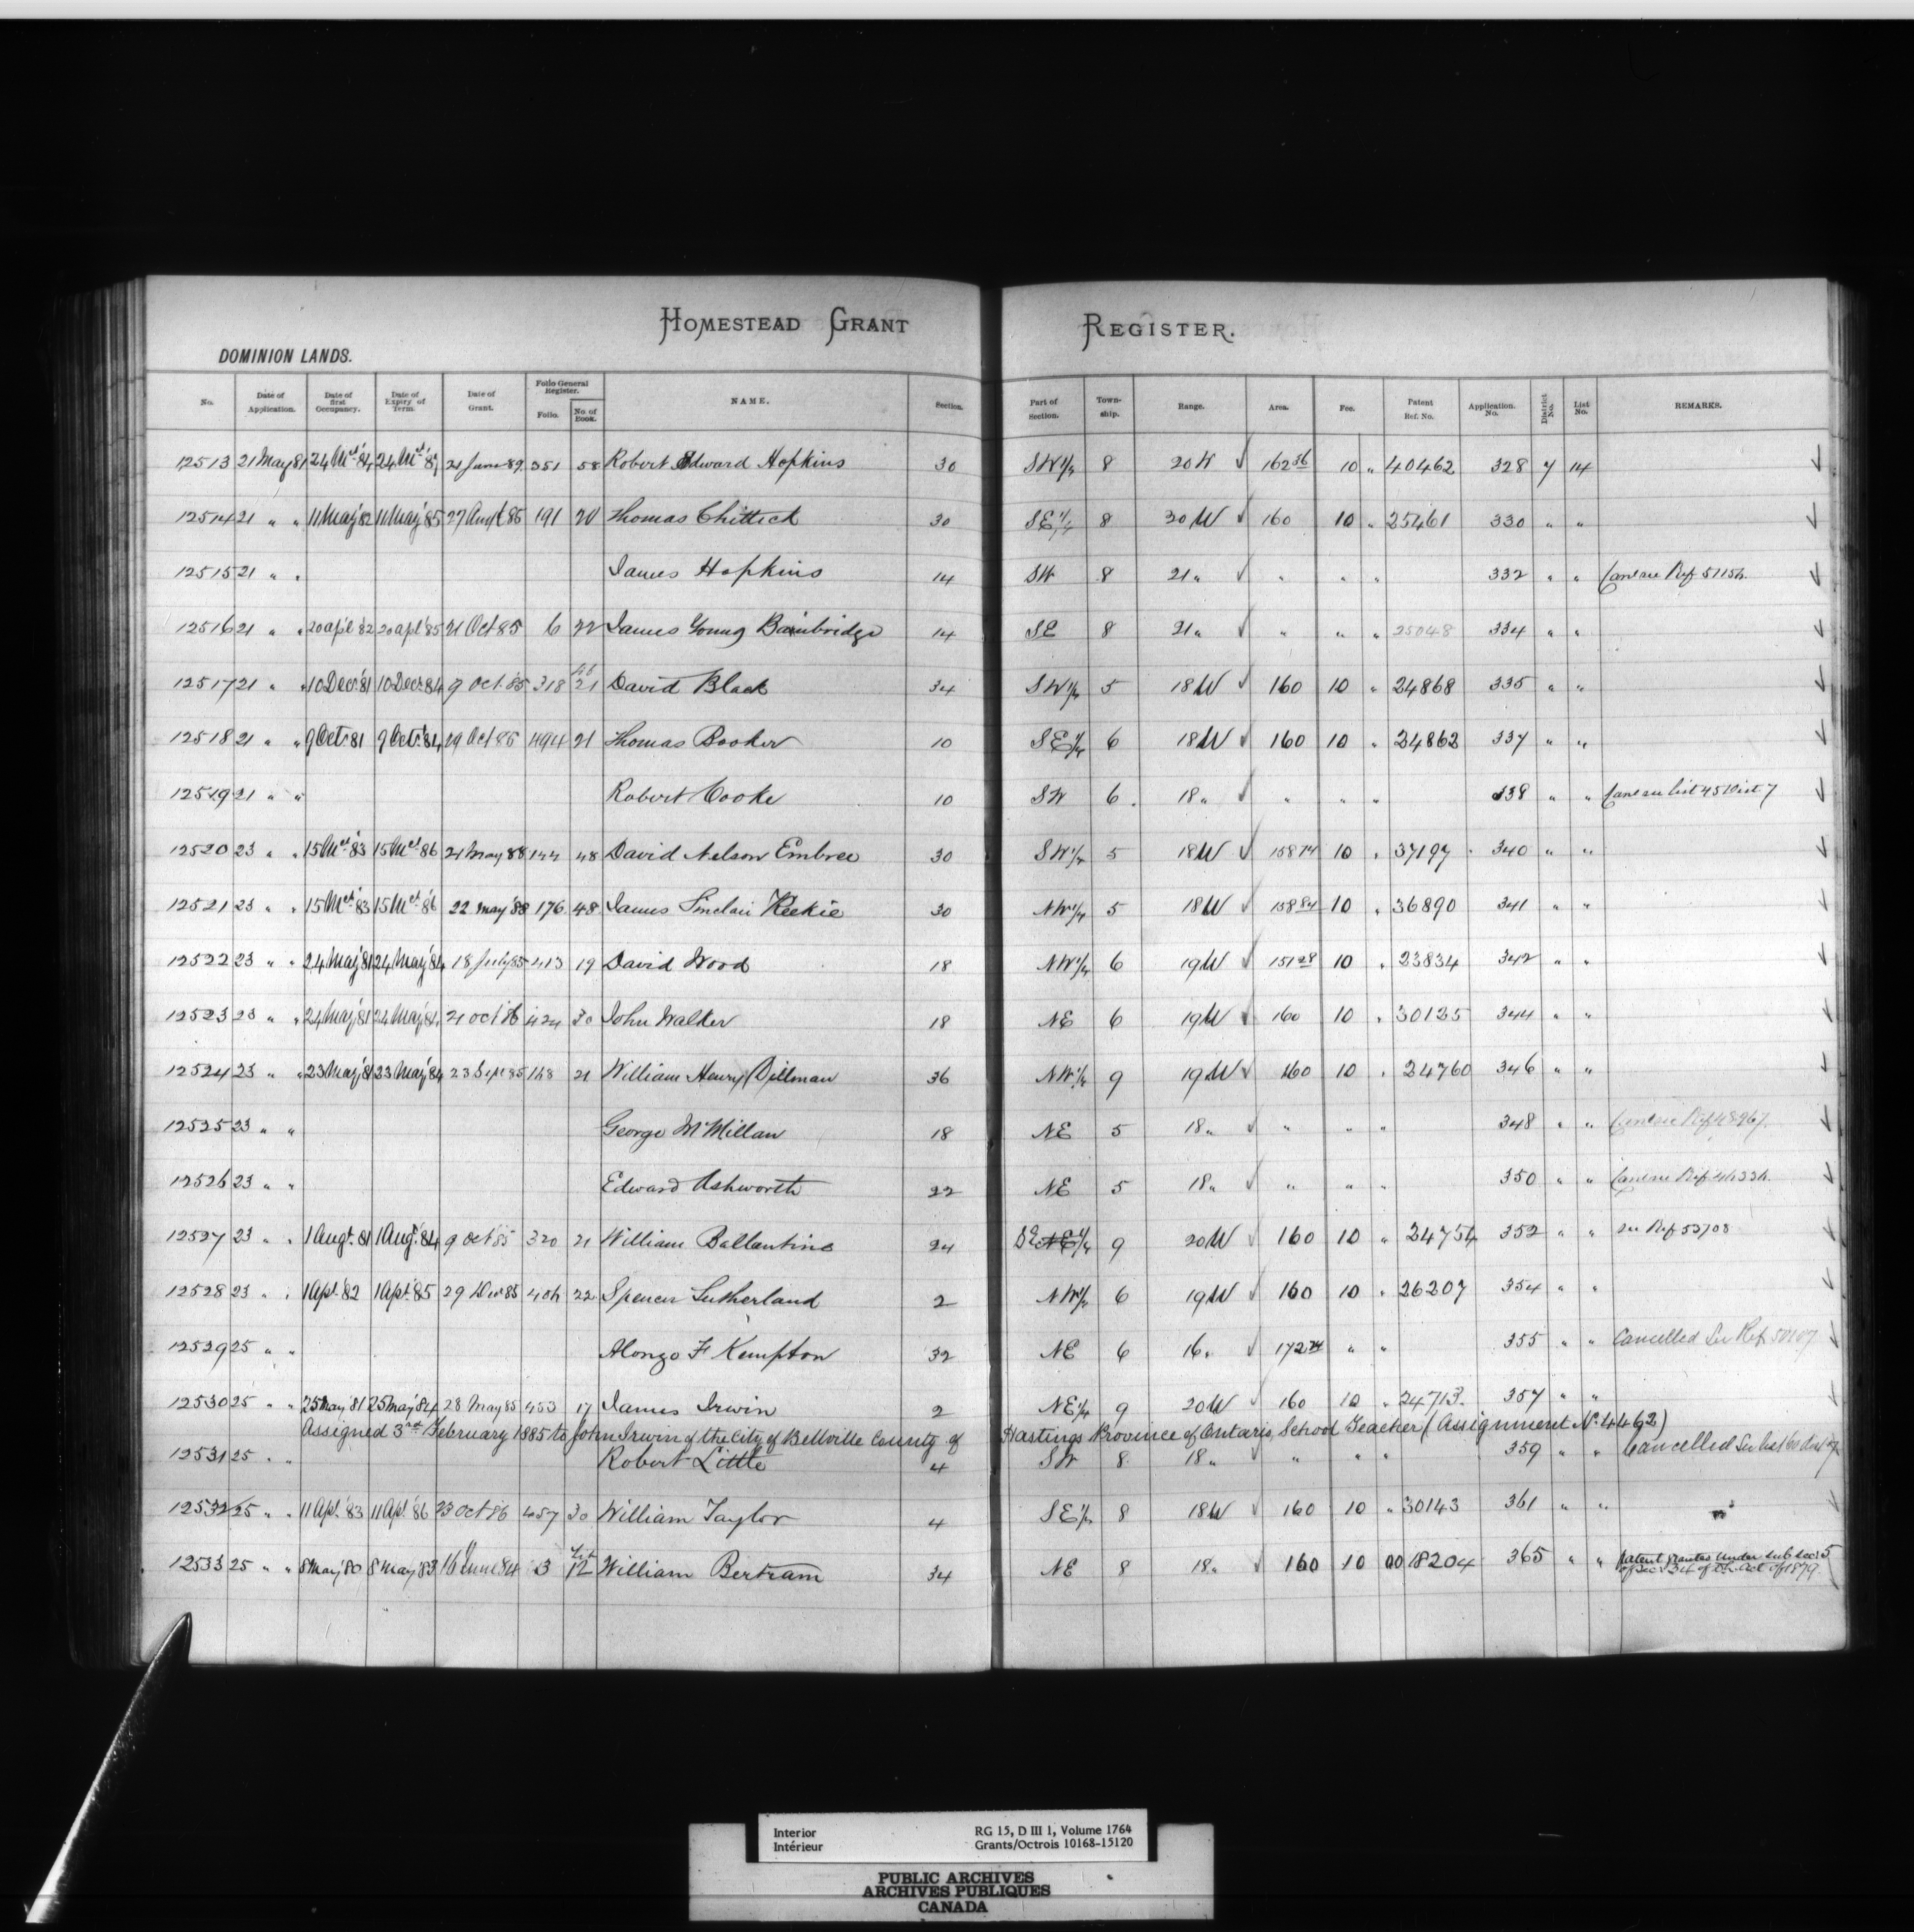 HOMESTEAD GRANT REGISTER.
DOMINION LANDS.
No. Date of Application. Date of first Occupancy. Date of Expiry of Term. Date of Grant. Folio General Register. Folio. No. of Book. NAME. Section. Part of Section. Town-ship. Range. Area. Fee. Patent Ref. No. Application. No. District No. List No. REMARKS.
12513 21 May 81 24 Mch 84 24 Mch 87 21 June 89 351 58 Robert Edward Hopkins 30 SW 1/4 8 20 W 162 36 10 " 40462 328 7 14
12514 21 " " 11 May 82 11 May 85 27 Augt 85 191 20 Thomas Chittick 30 SE 1/4 8 30 W 160 10 " 25461 330 " "
12515 21 " " James Hopkins 14 SW 8 21 " " " " 332 " "
12516 21 " " 20 apl 82 20 apl 85 21 Oct 85 6 22 James Young Bainbridge 14 SE 8 21 " " " " 25048 334 " "
12517 21 " " 10 Decr 81 10 Decr 84 9 Oct. 85 318 21 David Black 34 SW 1/4 5 18 W 160 10 " 24868 335 " "
12518 21 " " 9 Oct. 81 9 Oct. 84 29 Oct 85 494 21 Thomas Booker 10 SE 1/4 6 18 W 160 10 " 24862 337 " "
12519 21 " " Robert Cooke 10 SW 6 18 " " " " 338 " "
12520 23 " " 15 Mch 83 15 Mch 86 21 May 88 144 48 David Nelson Embree 30 SW 1/4 5 18 W 158 74 10 " 37197 340 " "
12521 23 " " 15 Mch 83 15 Mch 86 22 May 88 176 48 James Sinclair Reekie 30 NW 1/4 5 18 W 158 84 10 " 36890 341 " "
12522 23 " " 24 May 81 24 May 84 18 July 85 413 19 David Wood 18 NW 1/4 6 19 W 151 28 10 " 23834 342 " "
12523 23 " " 24 May 81 24 May 84 21 Oct 86 424 30 John Walker 18 NE 6 19 W 160 10 " 30125 344 " "
12524 23 " " 23 May 81 23 May 84 23 Sept 85 21 William Henry Dillman 36 NW 1/4 9 19 W 160 10 " 24760 346 " "
12525 23 " " George McMillan 18 NE 5 18 " " " " 348 " "
12526 23 " " Edward Ashworth 22 NE 5 18 " " " " 350 " "
12527 23 " " 1 Augt. 81 1 Augt. 84 9 Oct 85 320 21 William Ballantine 24 SE NE 1/4 9 20 W 160 10 " 24754 352 " " see Ref 53708
12528 23 " " 1 Apl. 82 1 Apl. 85 29 Decr 85 406 22 Spencer Sutherland 2 NW 1/4 6 19 W 160 10 " 26207 354 " "
12529 25 " " Alonzo F Kempton 32 NE 6 16 " 172 74 " " 355 " " Cancelled See Ref
12530 25 " " 25 May 81 25 May 84 28 May 85 453 17 James Irwin 2 NE 1/4 9 20 W 160 10 " 24713 357 " "
Assigned 3rd February 1885 to John Irwin of the City of Bellville County of Hastings Province of Ontario, School Teacher (Assignment No. 4462)
12531 25 " " Robert Little 4 SW 8 18 " " " " 359 " " Cancelled See List 60
12532 25 " " 11 Apl. 83 11 Apl. 86 23 Oct 86 457 30 William Taylor 4 SE 1/4 8 18 W 160 10 " 30143 361 " "
12533 25 " " 8 May 80 8 May 83 16 June 84 3 12 William Bertram 34 NE 8 18 " 160 10 00 18204 365 " " Patent Grantes under sub sec: 5
of Sec: 34 of the Act of 1879.
Interior RG 15, D III 1, Volume 1764
Intérieur Grants/Octrois 10168-15120
PUBLIC ARCHIVES
ARCHIVES PUBLIQUES
CANADA